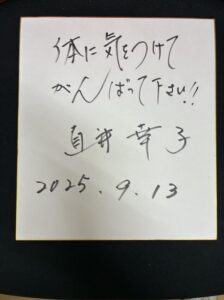 体に気をつけて
がんばって下さい!!
直井幸子
2025.9.13